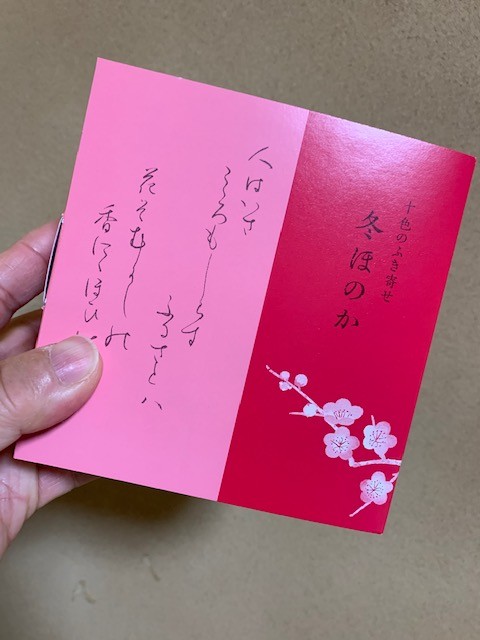 十色のふき寄せ
冬ほのか
人はいさ
こゝろもしらす
ふるさとハ
花そむかしの
香にゝほひ